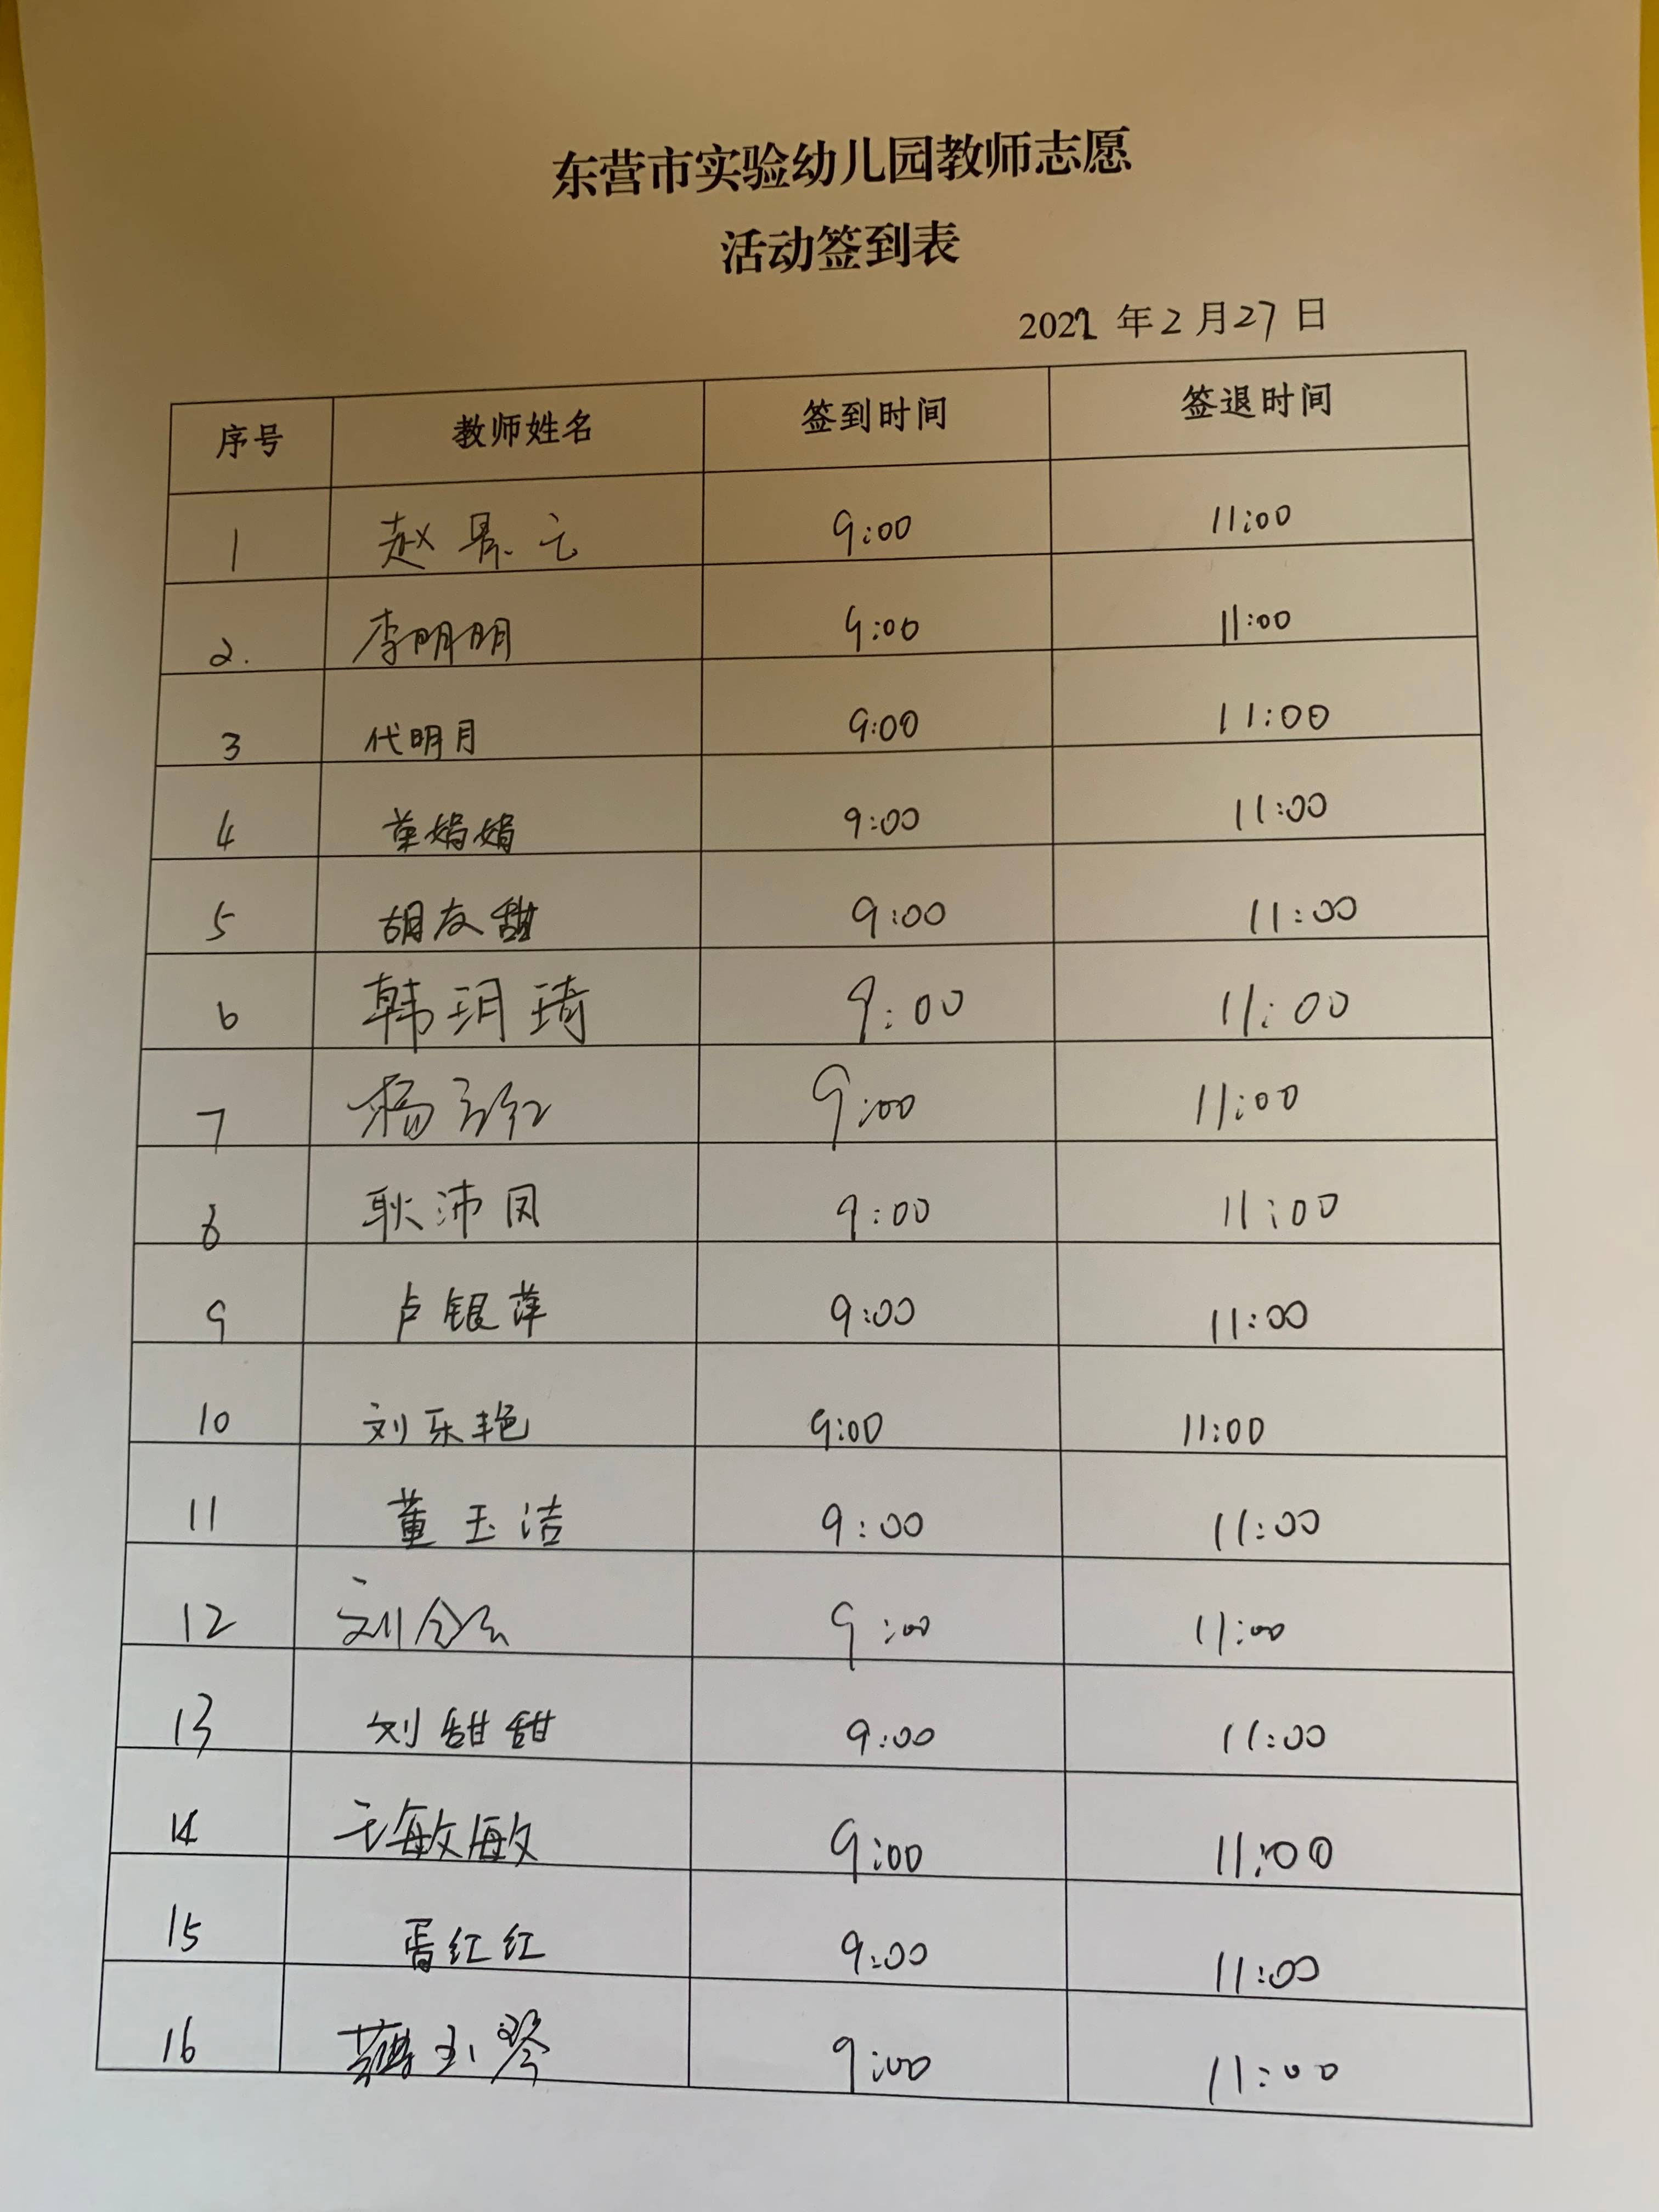 东营市实验幼儿园教师志愿
活动签到表
2022 年 2 月 27 日
序号 教师姓名 签到时间 签退时间
1 赵景云 9:00 11:00
2. 李明明 9:00 11:00
3 代明月 9:00 11:00
4 娟娟 9:00 11:00
5 胡友甜 9:00 11:00
6 韩玥琦 9:00 11:00
7 杨 红 9:00 11:00
8 耿沛凤 9:00 11:00
9 卢银萍 9:00 11:00
10 刘乐艳 9:00 11:00
11 董玉洁 9:00 11:00
12 刘会云 9:00 11:00
13 刘甜甜 9:00 11:00
14 敏敏 9:00 11:00
15 胥红红 9:00 11:00
16 玉琴 9:00 11:00